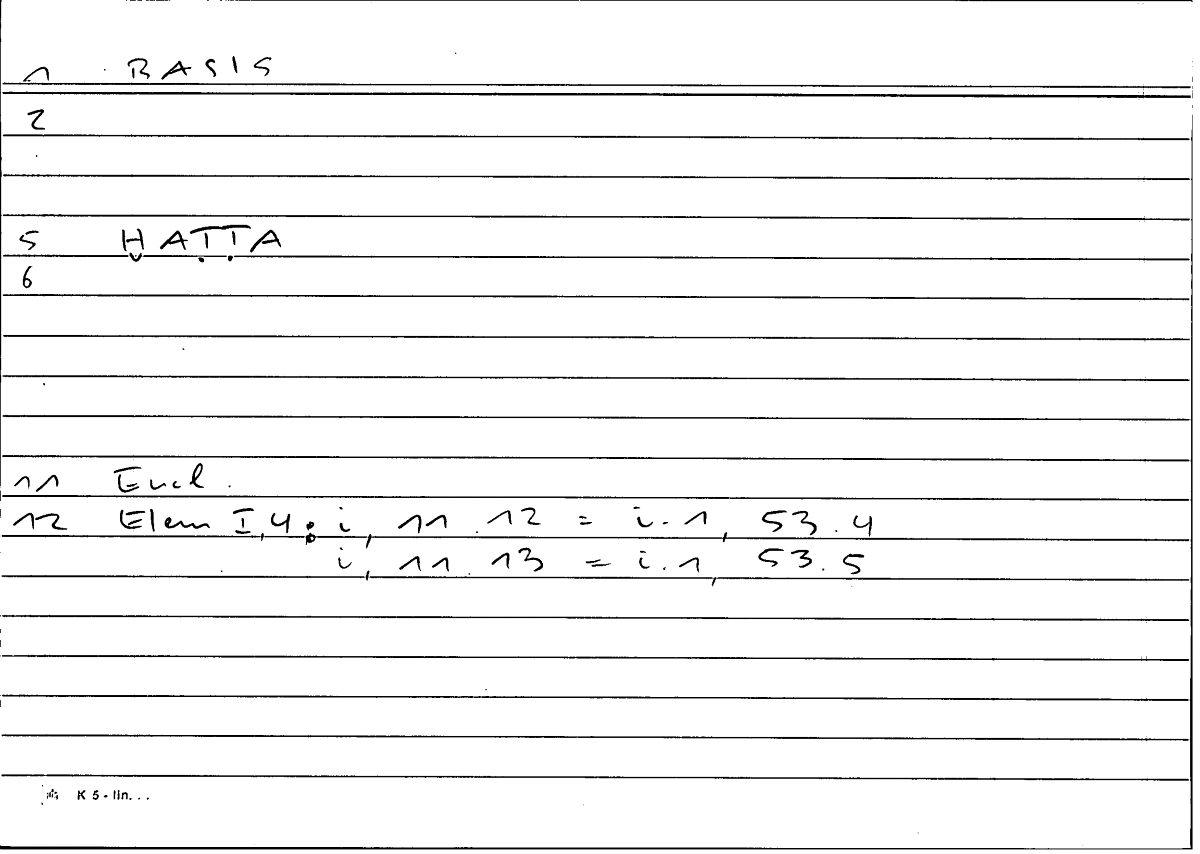 1 BASIS
2
5 ḪAṬṬA
6
11 Eucl.
12 Elem I,4: i, 11.12 = i.1, 53.4
i, 11.13 = i.1, 53.5
K 5 - lin...